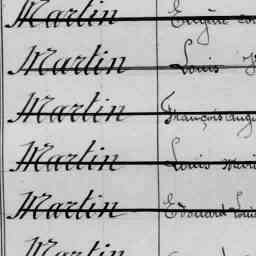 Martin Eugène
Martin Louis
Martin François
Martin Louis
Martin Edouard Louis
Martin